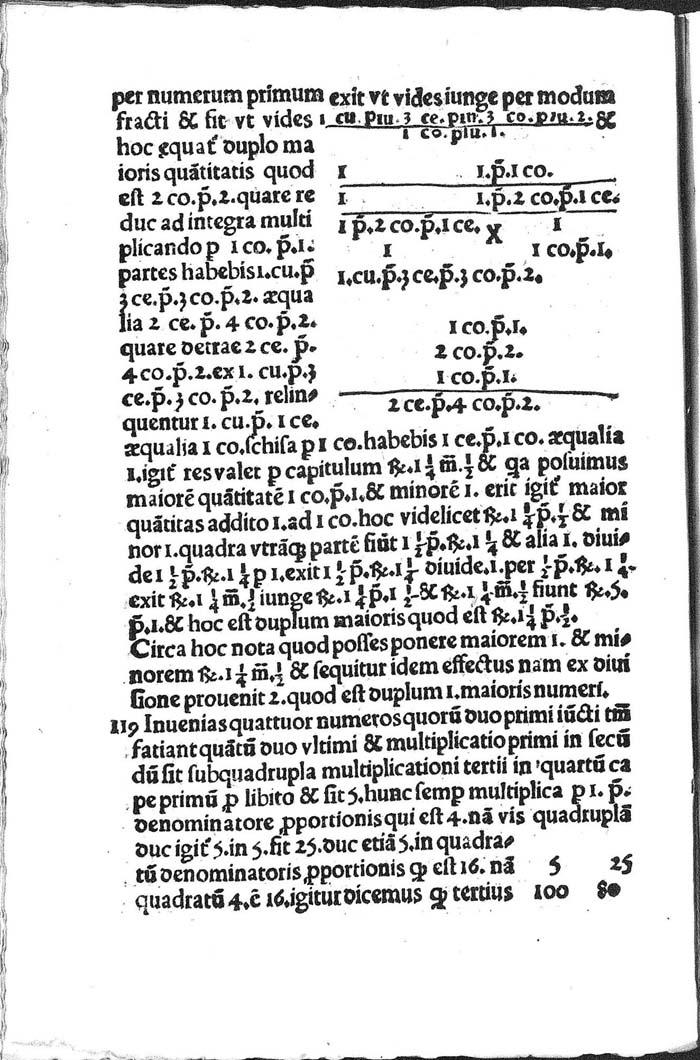 per numerum primum exit vt vides iunge per modum
fracti & fit vt vides 1 cu. plu. 3 ce. pin. 3 co. plu. 2. &
1 co. plu. 1.
hoc ęquat᷑ duplo ma
ioris quãtitatis quod
est 2 co.p̃.2. quare re
duc ad integra multi
plicando p 1 co. p̃.1.
partes habebis 1.cu.p̃
3 ce.p̃.3 co.p̃.2. æqua
lia 2 ce. p̃. 4 co.p̃.2.
quare detrae 2 ce. p̃.
4 co.p̃.2. ex 1. cu.p̃.3
ce.p̃. 3 co.p̃.2. relin⸗
quentur 1. cu.p̃. 1 ce.
1 1.p̃.1 co.
1 1.p̃.2 co.p̃.1 ce.
1 p̃.2 co.p̃.1 ce. X 1
1 1 co.p̃.1.
1.cu.p̃.3 ce.p̃.3 co.p̃.2.
1 co.p̃.1.
2 co.p̃.2.
1 co.p̃.1.
2 ce.p̃.4 co.p̃.2.
æqualia 1 co.schisa p 1 co.habebis 1 ce.p̃.1 co. æqualia
1.igit᷑ res valet ꝑ capitulum ℞.1 1/4 m̃.1/2 & qa posuimus
maiorẽ quãtitatẽ 1 co.p̃.1.& minorẽ 1. erit igit᷑ maior
quãtitas addito 1.ad 1 co.hoc videlicet ℞.1 1/4 p̃.1/2 & mi
nor 1.quadra vtrãqꝫ partẽ fiũt 1 1/2 p̃.℞.1 1/4 & alia 1. diui⸗
de 1 1/2 p̃.℞.1 1/4 p 1.exit 1 1/2 p̃.℞.1 1/4 diuide.1.per 1/2 p̃.℞.1 1/4.
exit ℞.1 1/4 m̃.1/2 iunge ℞.1 1/4 p̃.1 1/2 & ℞.1 1/4 m̃.1/2 fiunt ℞.5.
p̃.1.& hoc est duplum maioris quod est ℞.1 1/4 p̃.1/2.
Circa hoc nota quod posses ponere maiorem 1. & mi⸗
norem ℞.1 1/4 m̃.1/2 & sequitur idem effectus nam ex diui
sione prouenit 2.quod est duplum 1.maioris numeri.
119 Inuenias quattuor numeros quorũ duo primi iũcti tm̃
fatiant quãtũ duo vltimi & multiplicatio primi in secũ
dũ sit subquadrupla multiplicationi tertii in quartũ ca
pe primũ ꝓ libito & sit 5.hunc semp multiplica p 1. p̃.
denominatore ꝓportionis qui est 4.nã vis quadruplã
duc igit᷑ 5.in 5.fit 25.duc etiã 5.in quadra⸗
tũ denominatoris ꝓportionis qꝫ est 16. nã 5 25
quadratũ 4.ẽ 16.igitur dicemus qꝫ tertius 100 80